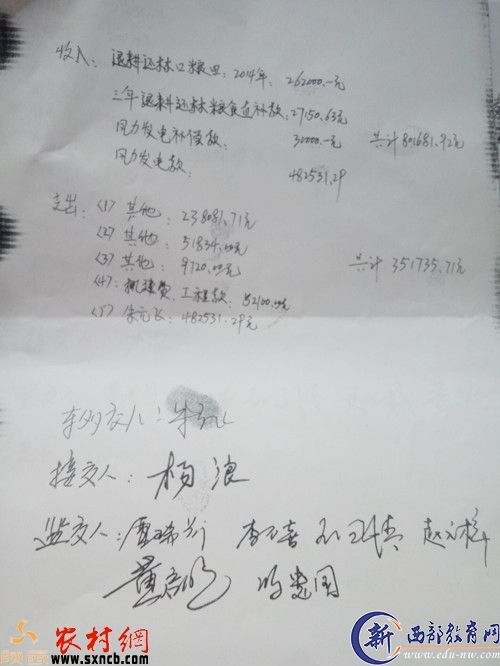 收入：退耕还林口粮田：2014年：262000.—元
三年退耕还林粮食直补款：27150.63元
风力发电补偿款：30000.—元 共计801681.92元
风力发电款： 482531.29
支出：<1> 其他：238081.71元
<2> 其他：51834.00元
<3> 其他：9720.00元 共计351735.71元
<4>：机建费、工程款：52100.00元
<5> 朱元长：482531.29元
移交人：
接交人：杨浪
监交人：
农村網
www.sxncb.com
陕西
新 西部教育网
www.edu-nw.com